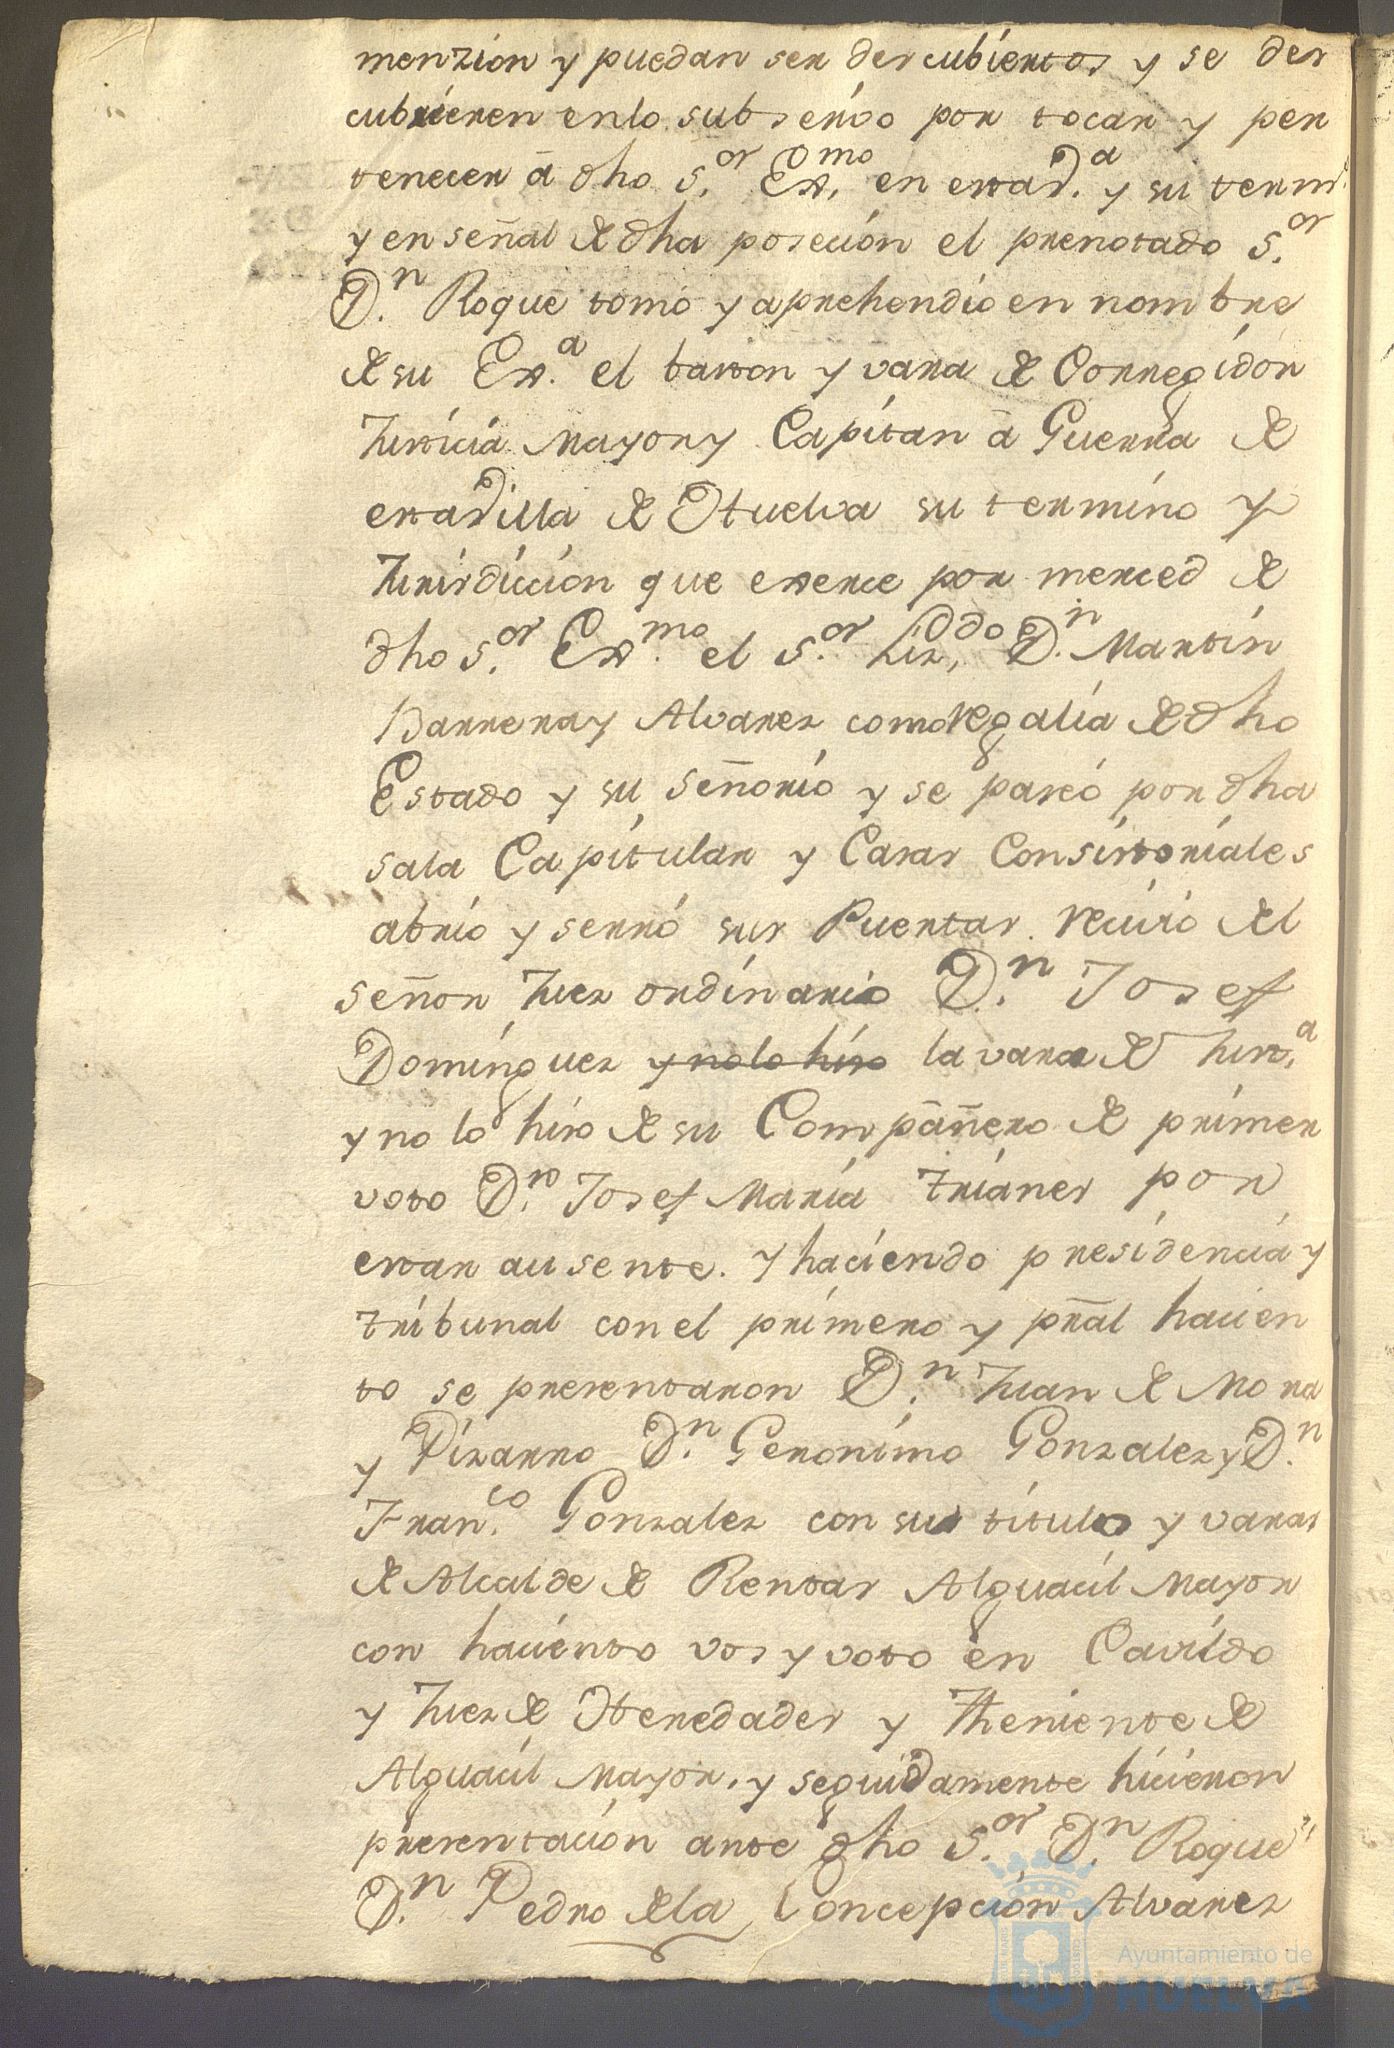 menzion y puedan ser descubiertos y se des
cubrieren en lo subsesivo por tocar y per
tenecer â dho S.or Ex.mo en esta v.a y su term.
y en señal de dha posecion el prenotado S.or
D.n Roque tomó y aprehendio en nombre
de su Ex.a el baston y vara de Corregidor
Justicia Mayor y Capitan â Guerra de
esta villa de Huelva su termino y
Jurisdiccion que exerce por merced de
dho S.or Ex.mo el S.or Liz.do D.n Martin
Barrera y Alvarez como regalia de dho
Estado y su señorio y se paseó por dha
sala Capitular y Casas Consistoriales
abrio y serró sus Puertas recivió del
señor Juez ordinario D.n Josef
Dominguez y no lo hiso la vara de Just.a
y no lo hiso de su Compañero de primer
voto D.n Josef Maria Trianes por
estar ausente. y haciendo presidencia y
tribunal con el primero y pral hacien
to se presentaron D.n Juan de Mora
y Pizarro D.n Geronimo Gonzalez y D.n
Fran.co Gonzalez con sus titulos y varas
de Alcalde de Rentas Alguacil Mayor
con haciento vos y voto en Cavildo
y Juez de Heredades y Theniente de
Alguacil Mayor. y seguidamente hicieron
presentacion ante dho S.or D.n Roque
D.n Pedro de la Concepcion Alvarez
Ayuntamiento de
HUELVA